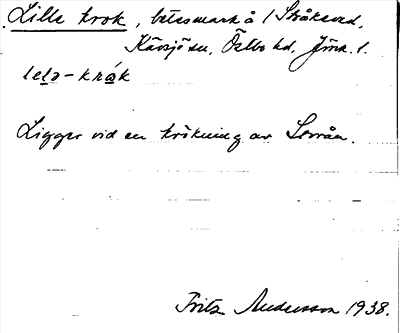 Lille krok, betesmark å 1 Stråkeved,
Kävsjö sn, Östbo hd, Jönk. l.
lela-krók
Ligger vid en krökning av Svanån.
Fritz Andersson 1938.